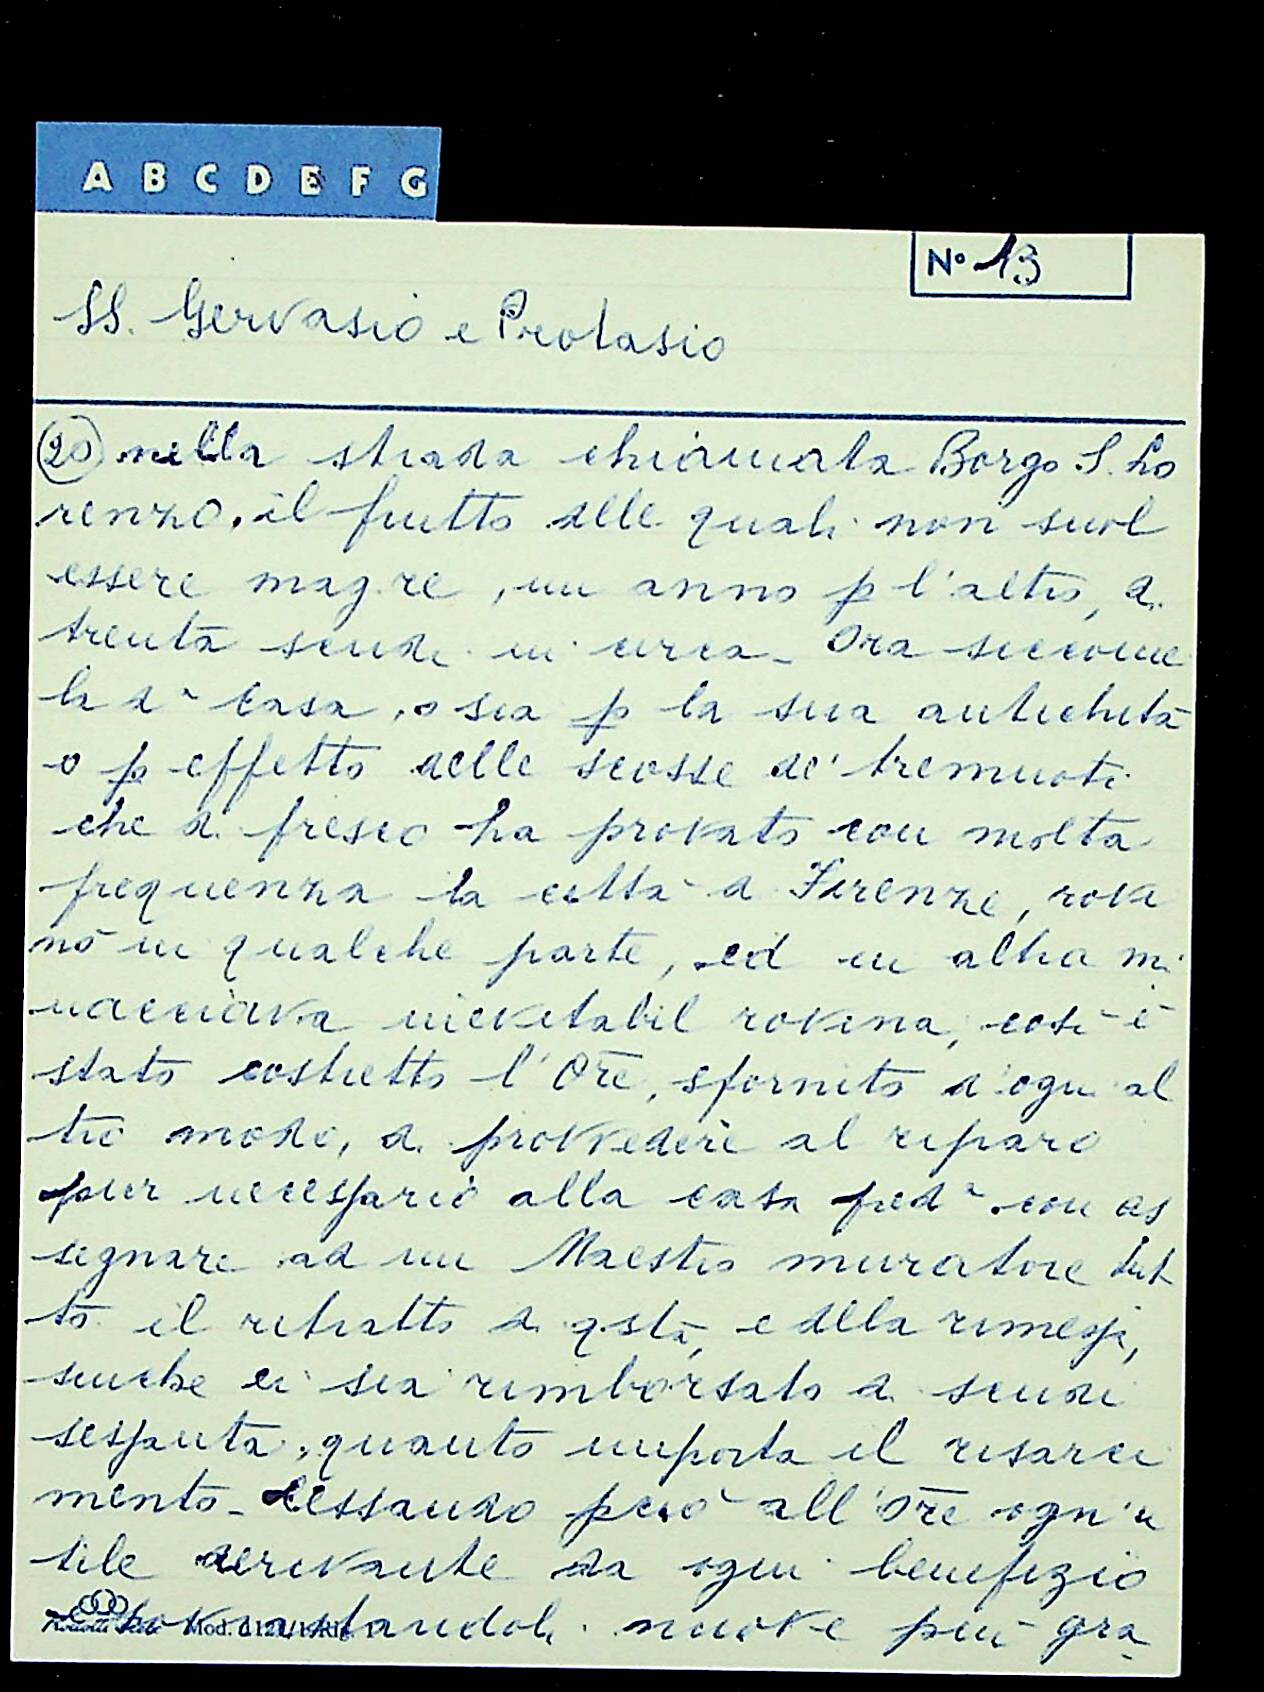 A B C D E F G
N° 13
SS. Gervasio e Protasio
(20) nella strada chiamata Borgo S. Lo
renzo, il frutto delle quali non suol
essere magre, un anno p l'altro, di
trenta scudi in circa - Ora siccome
la dª casa, o sia p la sua antichità
o p effetto delle scosse de' tremuoti
che di fresco ha provato con molta
frequenza la città di Firenze, rovi
nò in qualche parte, ed in altra mi
nacciava inevitabil rovina, così è
stato costretto l'Ore, sfornito d'ogni al
tro modo, di provvedere al riparo
pur necessario alla casa pred.ª con as
segnare ad un Maestro muratore tut
to il ritratto di qstà, e della rimessa,
finche ei sia rimborsato di scudi
sessanta, quanto importa il risarci
mento - Cessando però all'Ore ogn'u
tile derivante da ogni benefizio
sovrastandoli nuove più gra